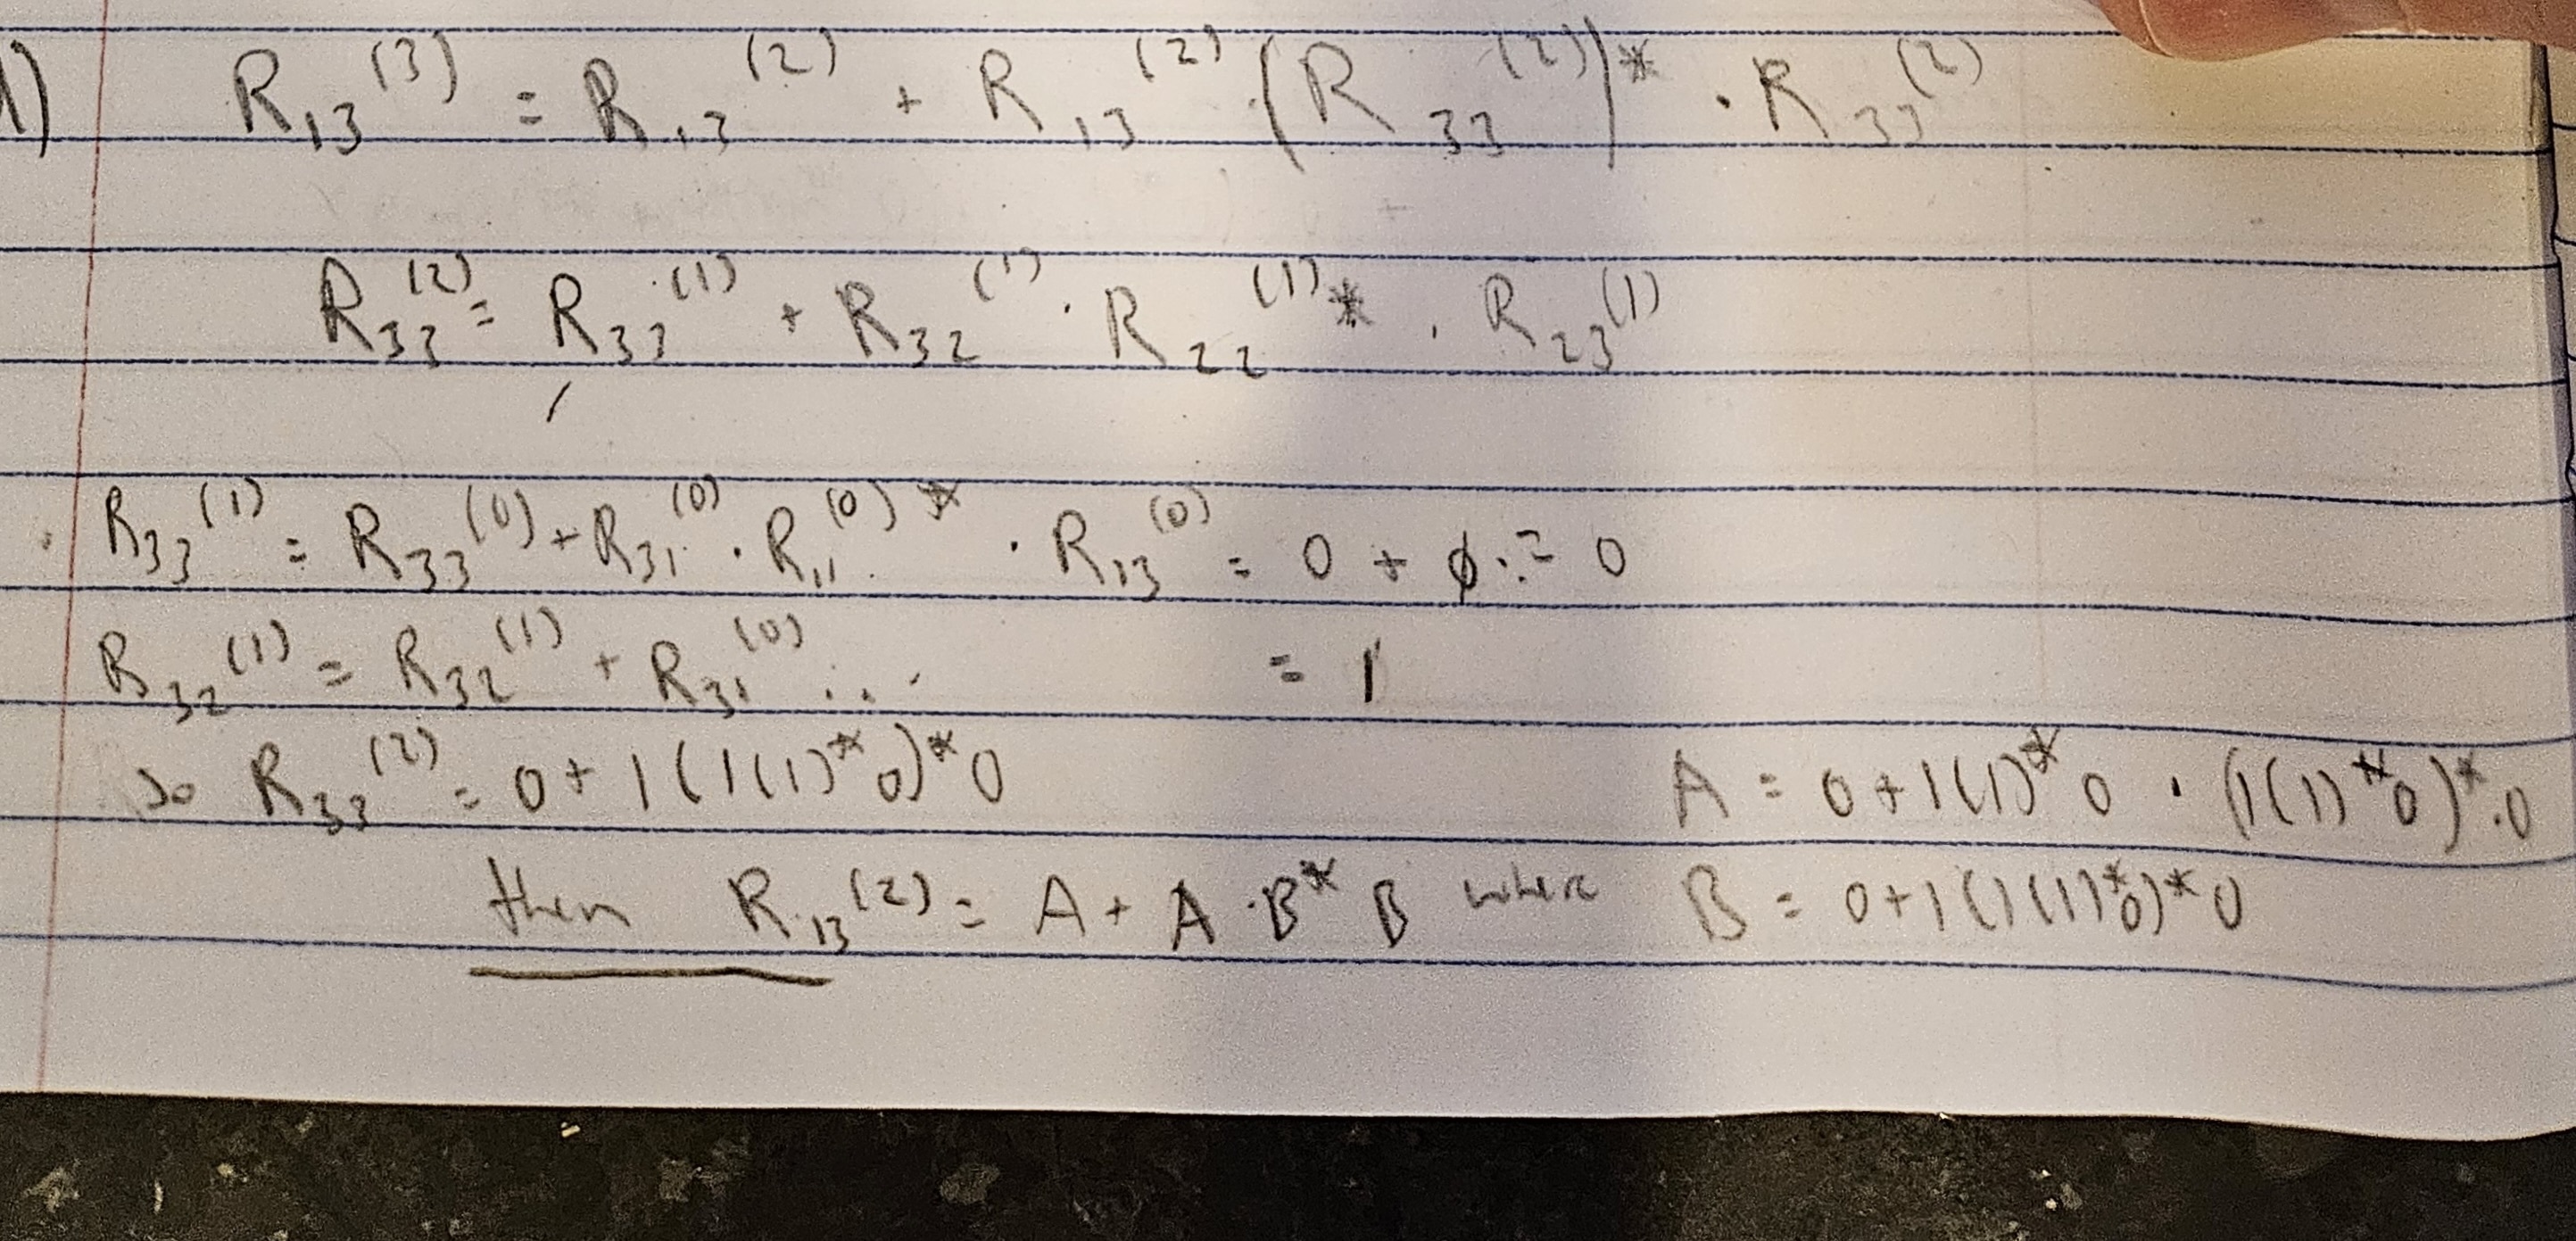 d) R₁₃⁽³⁾ = R₁₃⁽²⁾ + R₁₃⁽²⁾ · (R₃₃⁽²⁾)* · R₃₃⁽²⁾
R₃₃⁽²⁾ = R₃₃⁽¹⁾ + R₃₂⁽¹⁾ · R₂₂⁽¹⁾* · R₂₃⁽¹⁾
R₃₃⁽¹⁾ = R₃₃⁽⁰⁾ + R₃₁⁽⁰⁾ · R₁₁⁽⁰⁾* · R₁₃⁽⁰⁾ = 0 + ϕ · = 0
R₃₂⁽¹⁾ = R₃₂⁽¹⁾ + R₃₁⁽⁰⁾ ... = 1
so R₃₃⁽²⁾ = 0 + 1(1(1)*0)*0 A = 0 + 1(1)*0 · (1(1)*0)*.0
then R₁₃⁽²⁾ = A + A · B* B where B = 0 + 1(1(1)*0)*0